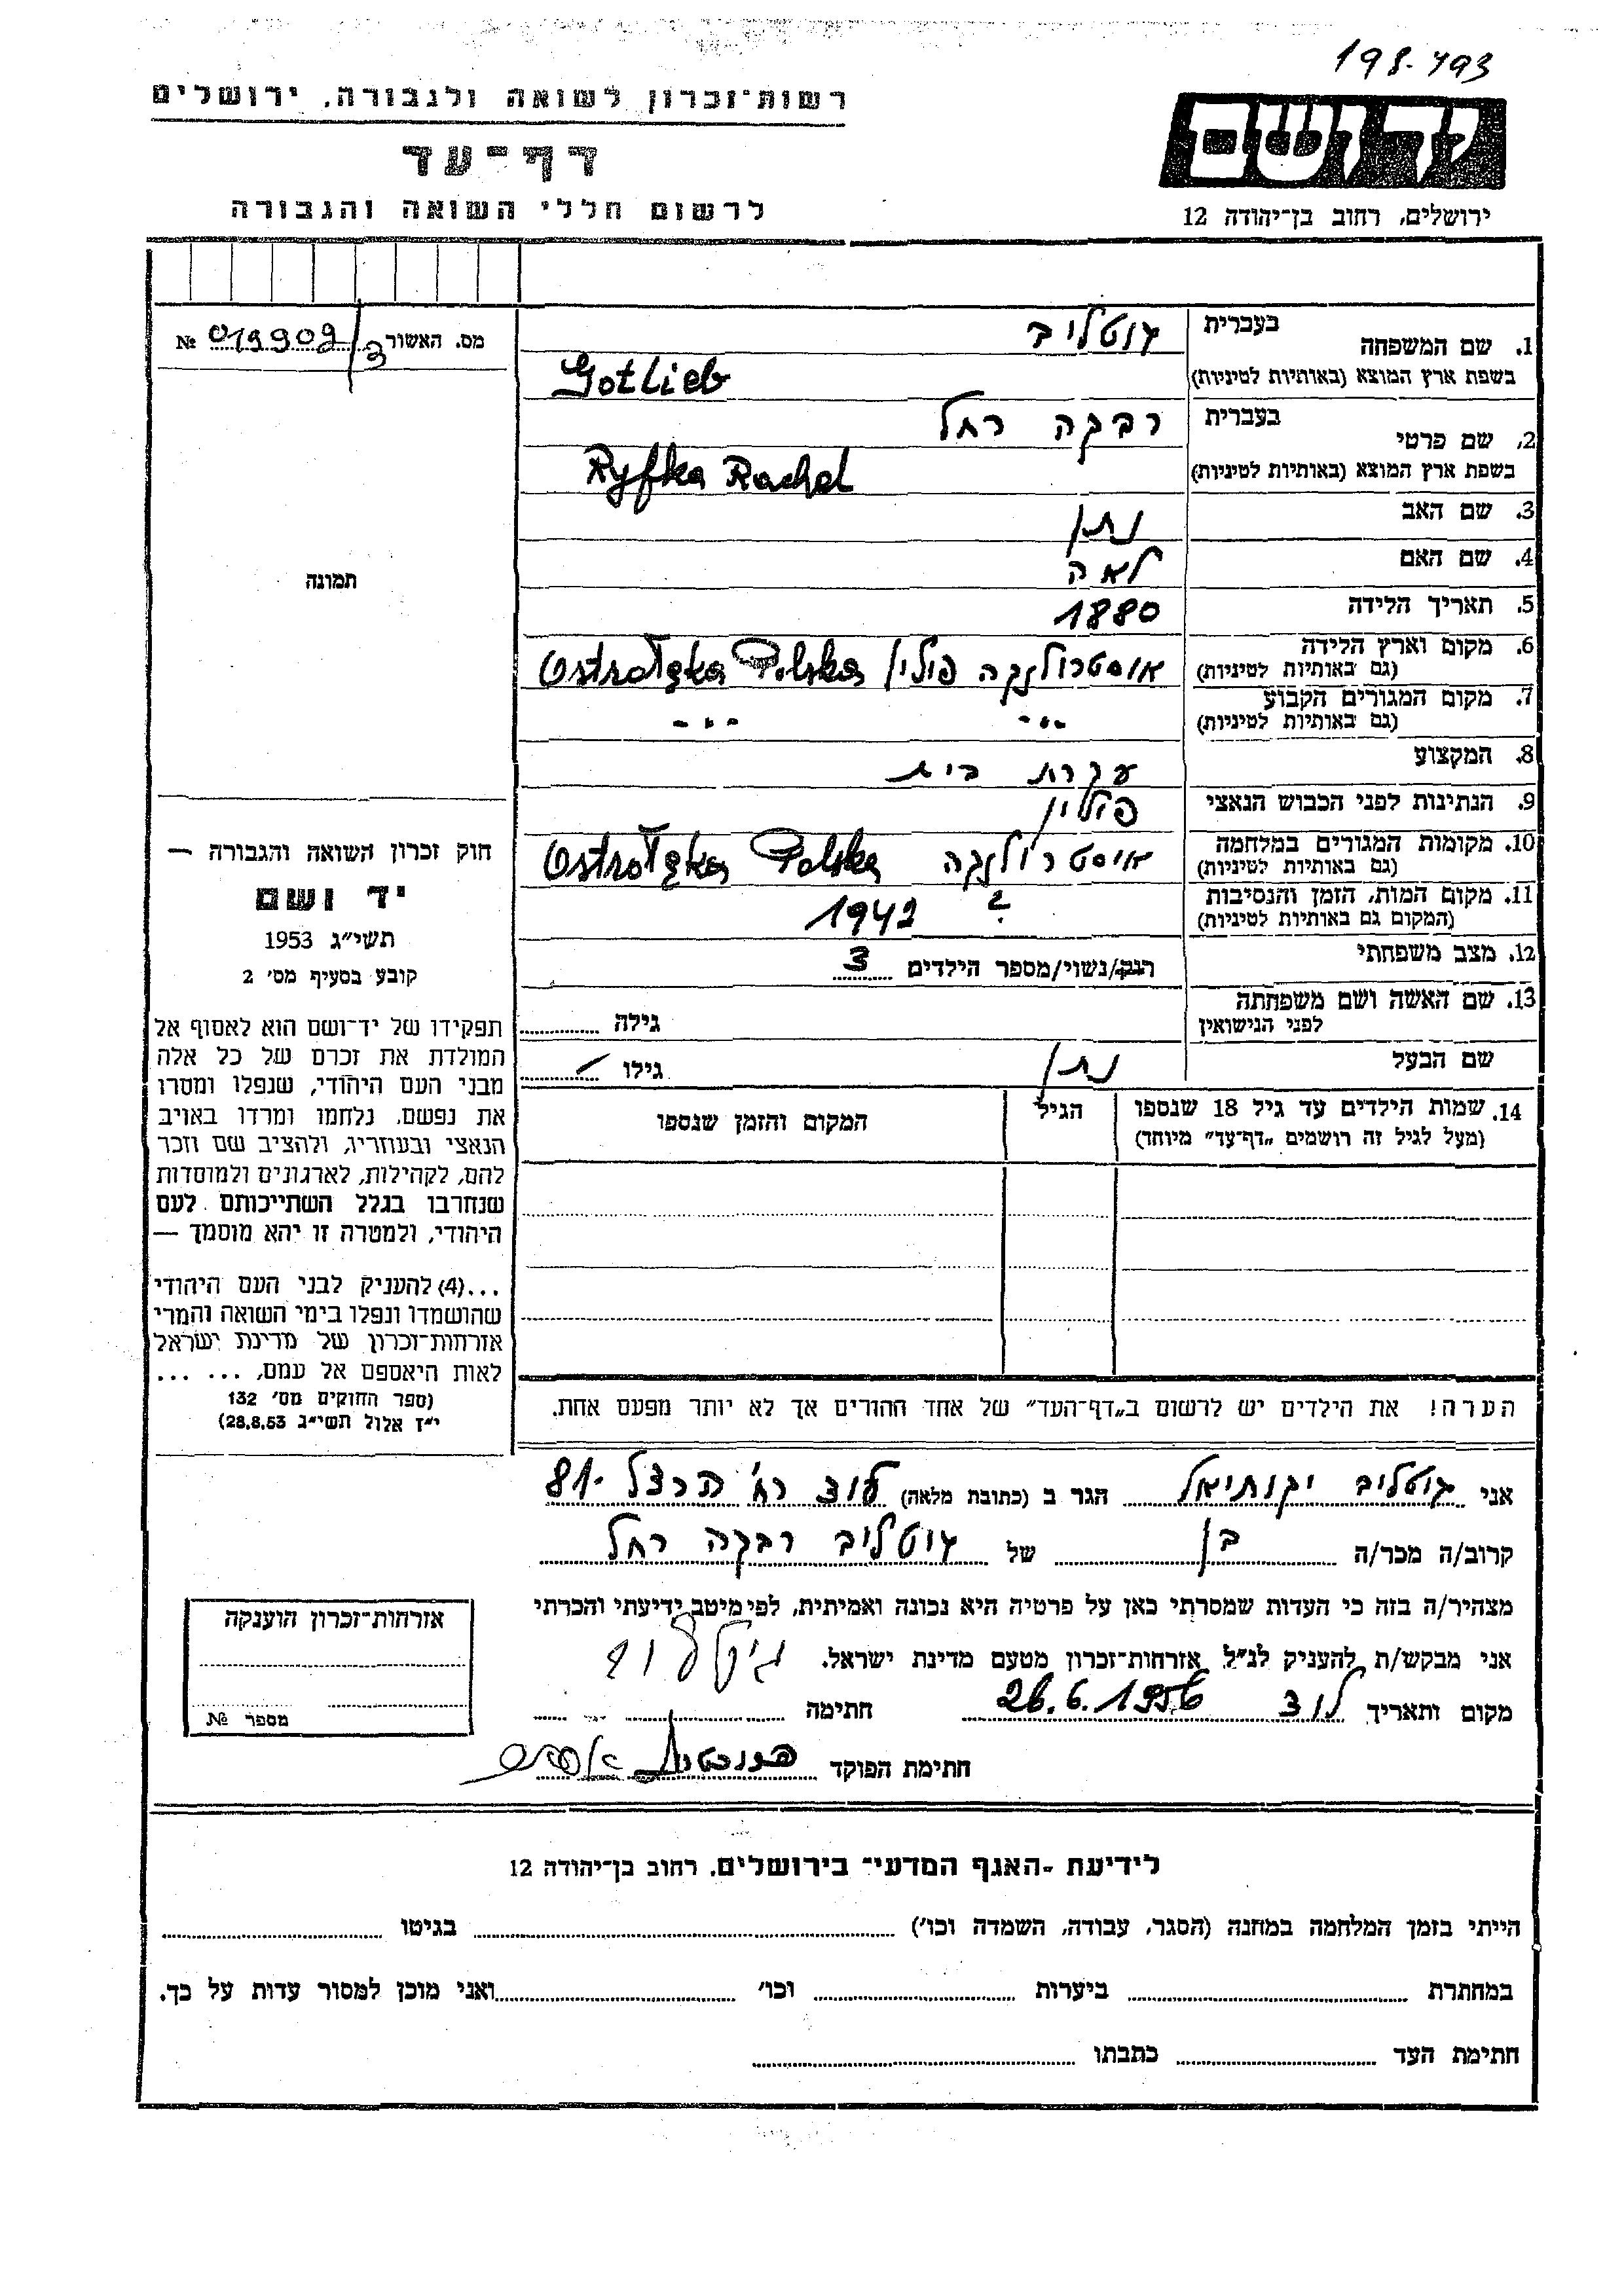 198.493
יד ושם
ירושלים, רחוב בן־יהודה 12
רשות־זכרון לשואה ולגבורה, ירושלים
דף־עד
לרשום חללי השואה והגבורה
מס. האשור 019909/3 №
1. שם המשפחה בעברית גוטליב
בשפת ארץ המוצא (באותיות לטיניות) Gotlieb
2. שם פרטי בעברית רבקה רחל
בשפת ארץ המוצא (באותיות לטיניות) Ryfka Rachel
3. שם האב נתן
4. שם האם לאה
5. תאריך הלידה 1880
6. מקום וארץ הלידה (גם באותיות לטיניות) אוסטרולנקה פולין Ostrołęka Polska
7. מקום המגורים הקבוע (גם באותיות לטיניות) -"- -"-
8. המקצוע עקרת בית
9. הנתינות לפני הכבוש הנאצי פולין
10. מקומות המגורים במלחמה (גם באותיות לטיניות) אוסטרולנקה Ostrołęka Polska
11. מקום המות, הזמן והנסיבות (המקום גם באותיות לטיניות) ? 1942
12. מצב משפחתי רווק/נשוי/מספר הילדים 3
13. שם האשה ושם משפחתה לפני הנישואין גילה
שם הבעל נתן גילו
14. שמות הילדים עד גיל 18 שנספו (מעל לגיל זה רושמים „דף־עד" מיוחד) הגיל המקום והזמן שנספו
הערה! את הילדים יש לרשום ב„דף־העד" של אחד ההורים אך לא יותר מפעם אחת.
תמונה
חוק זכרון השואה והגבורה —
יד ושם
תשי"ג 1953
קובע בסעיף מס' 2
תפקידו של יד־ושם הוא לאסוף אל
המולדת את זכרם של כל אלה
מבני העם היהודי, שנפלו ומסרו
את נפשם, נלחמו ומרדו באויב
הנאצי ובעוזריו, ולהציב שם וזכר
להם, לקהילות, לארגונים ולמוסדות
שנחרבו בגלל השתייכותם לעם
היהודי, ולמטרה זו יהא מוסמך —
...(4) להעניק לבני העם היהודי
שהושמדו ונפלו בימי השואה והמרי
אזרחות־זכרון של מדינת ישראל
לאות היאספם אל עמם, ... ...
(ספר החוקים מס' 132
י"ז אלול תשי"ג 28.8.53)
אני גוטליב יקותיאל הגר ב (כתובת מלאה) לוד רח' הרצל 81
קרוב/ה מכר/ה בן של גוטליב רבקה רחל
מצהיר/ה בזה כי העדות שמסרתי כאן על פרטיה היא נכונה ואמיתית, לפי מיטב ידיעתי והכרתי
אני מבקש/ת להעניק לנ"ל אזרחות־זכרון מטעם מדינת ישראל.
מקום ותאריך לוד 26.6.1956 חתימה
חתימת הפוקד
אזרחות־זכרון הוענקה
מספר №
לידיעת ־האגף המדעי־ בירושלים, רחוב בן־יהודה 12
הייתי בזמן המלחמה במחנה (הסגר, עבודה, השמדה וכו') בגיטו
במחתרת ביערות וכו' ואני מוכן למסור עדות על כך.
חתימת העד כתבתו